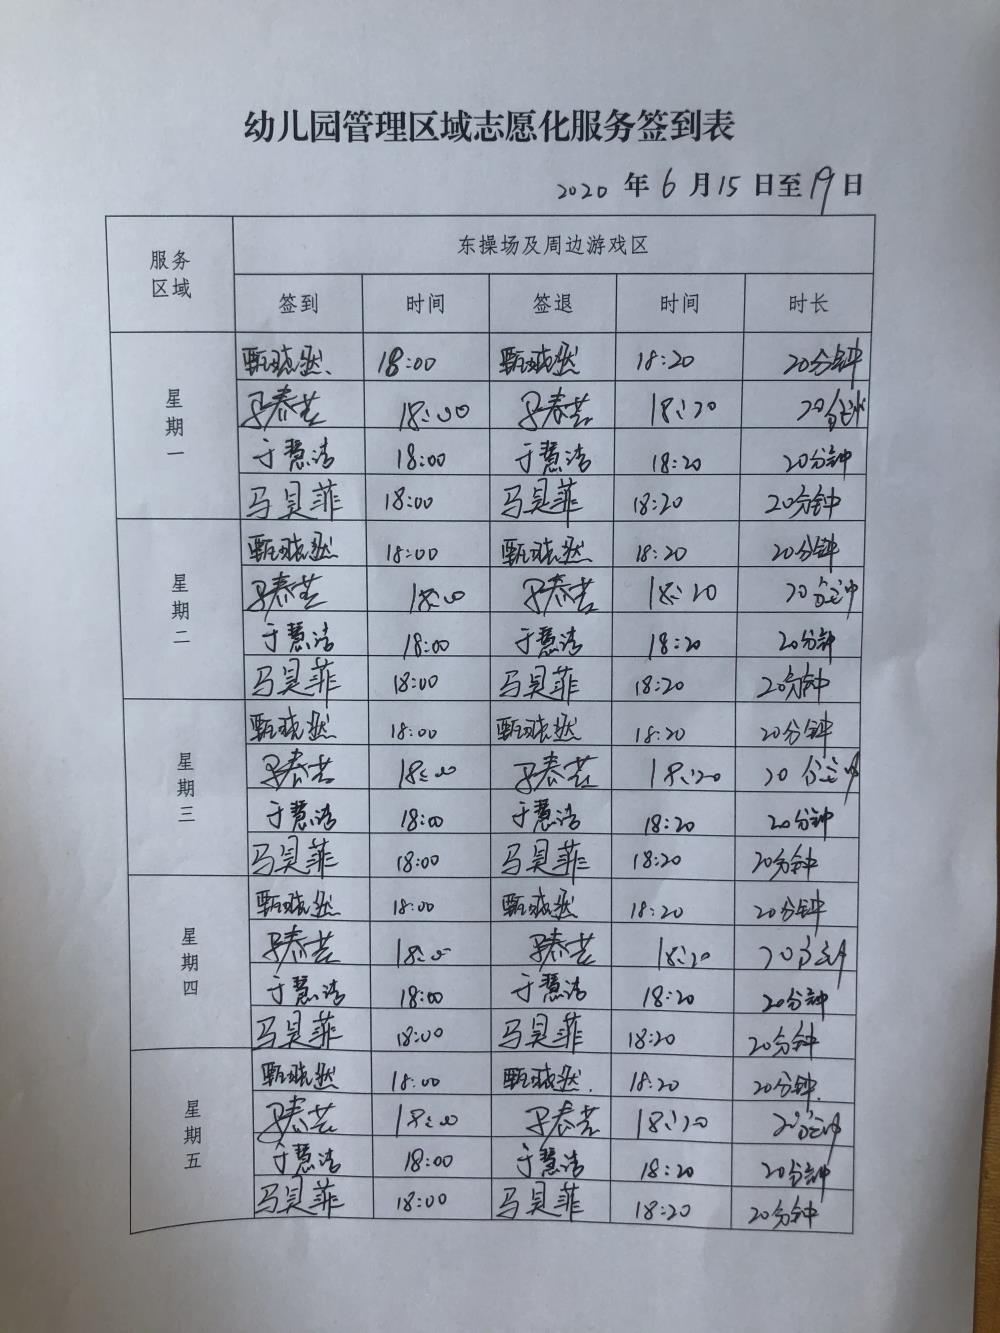 幼儿园管理区域志愿化服务签到表
2020 年 6 月 15 日至 19 日
服务区域 东操场及周边游戏区
签到 时间 签退 时间 时长
星期一
甄晓然 18:00 甄晓然 18:20 20分钟
马春芸 18:00 马春芸 18:20 20分钟
于慧洁 18:00 于慧洁 18:20 20分钟
马贝菲 18:00 马贝菲 18:20 20分钟
星期二
甄晓然 18:00 甄晓然 18:20 20分钟
马春芸 18:00 马春芸 18:20 20分钟
于慧洁 18:00 于慧洁 18:20 20分钟
马贝菲 18:00 马贝菲 18:20 20分钟
星期三
甄晓然 18:00 甄晓然 18:20 20分钟
马春芸 18:00 马春芸 18:20 20分钟
于慧洁 18:00 于慧洁 18:20 20分钟
马贝菲 18:00 马贝菲 18:20 20分钟
星期四
甄晓然 18:00 甄晓然 18:20 20分钟
马春芸 18:00 马春芸 18:20 20分钟
于慧洁 18:00 于慧洁 18:20 20分钟
马贝菲 18:00 马贝菲 18:20 20分钟
星期五
甄晓然 18:00 甄晓然 18:20 20分钟
马春芸 18:00 马春芸 18:20 20分钟
于慧洁 18:00 于慧洁 18:20 20分钟
马贝菲 18:00 马贝菲 18:20 20分钟